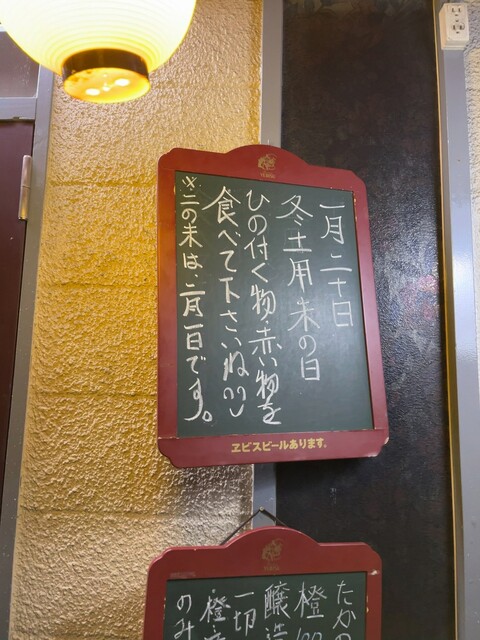 一月二十日
冬土用未の日
ひの付く物、赤い物を
食べて下さいね
※二の未は、二月一日です。
ヱビスビールあります。
たか
橙
醸造
一切
橙
のみ